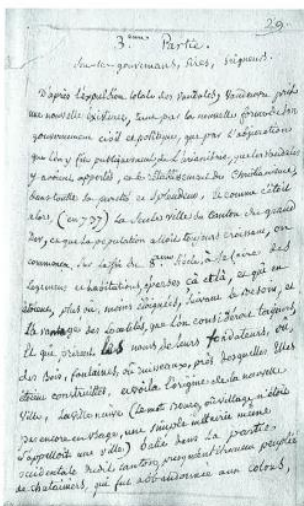 29.
3.eme Partie.
Sous les gouverneurs, Sires, Seigneurs.
D'après l'expulsion totale des Vandales, Vandeuvre prit
une nouvelle Existence, tant par la nouvelle forme de son
gouvernement civil et politique, que par l'abjuration
que l'on y fit publiquement de l'arianisme, que les Vandales
y avoient apporté, et de l'Etablissement du Christianisme,
dans toute la pureté et Splendeur, et comme c'étoit
alors, (en 737) la Seule ville du Canton du grand
Der, et que la population alloit toujours croissant, on
commença, sur la fin du 8.eme Siècle, à se faire des
Logemens et habitations, éparses çà et là, et qui en
étoient, plus ou moins éloignées, suivant le besoin, et
les avantages des Localités, que l'on considéroit toujours,
Et qui prirent les noms de leurs fondateurs, ou
des Bois, fontaines, ou ruisseaux, près desquelles Elles
étoient construites, et voilà l'origine de la nouvelle
Ville, La Villeneuve (le mot Bourg, ou village, n'étoit
pas encore en usage, une simple métairie même
s'appelloit une ville) batie dans la partie
occidentale dudit canton, presqu'entièrement peuplée
de chataîniers, qui fut abbandonnée aux colons,